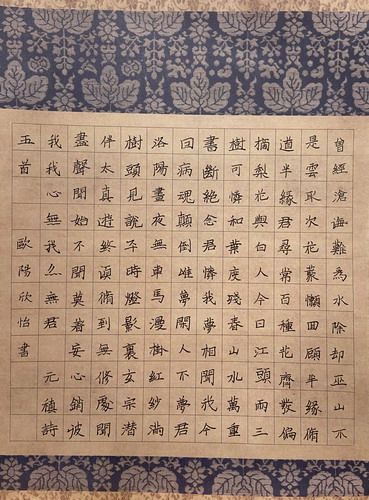 曾經滄海難為水除却巫山不
是雲取次花叢懶回顧半緣脩
道半緣君尋常百種花齊發偏
摘梨花與白人今日江頭兩三
樹可憐和葉度殘春山水萬重
書斷絕念君憐我夢相聞我今
因病魂顛倒唯夢閑人不夢君
洛陽晝夜無車馬漫掛紅紗滿
樹頭見說平時燈影裏玄宗潛
伴太真遊終須脩到無脩處聞
盡聲聞始不聞莫著妄心銷彼
我我心無我亦無君元稹詩
五首歐陽欣怡書